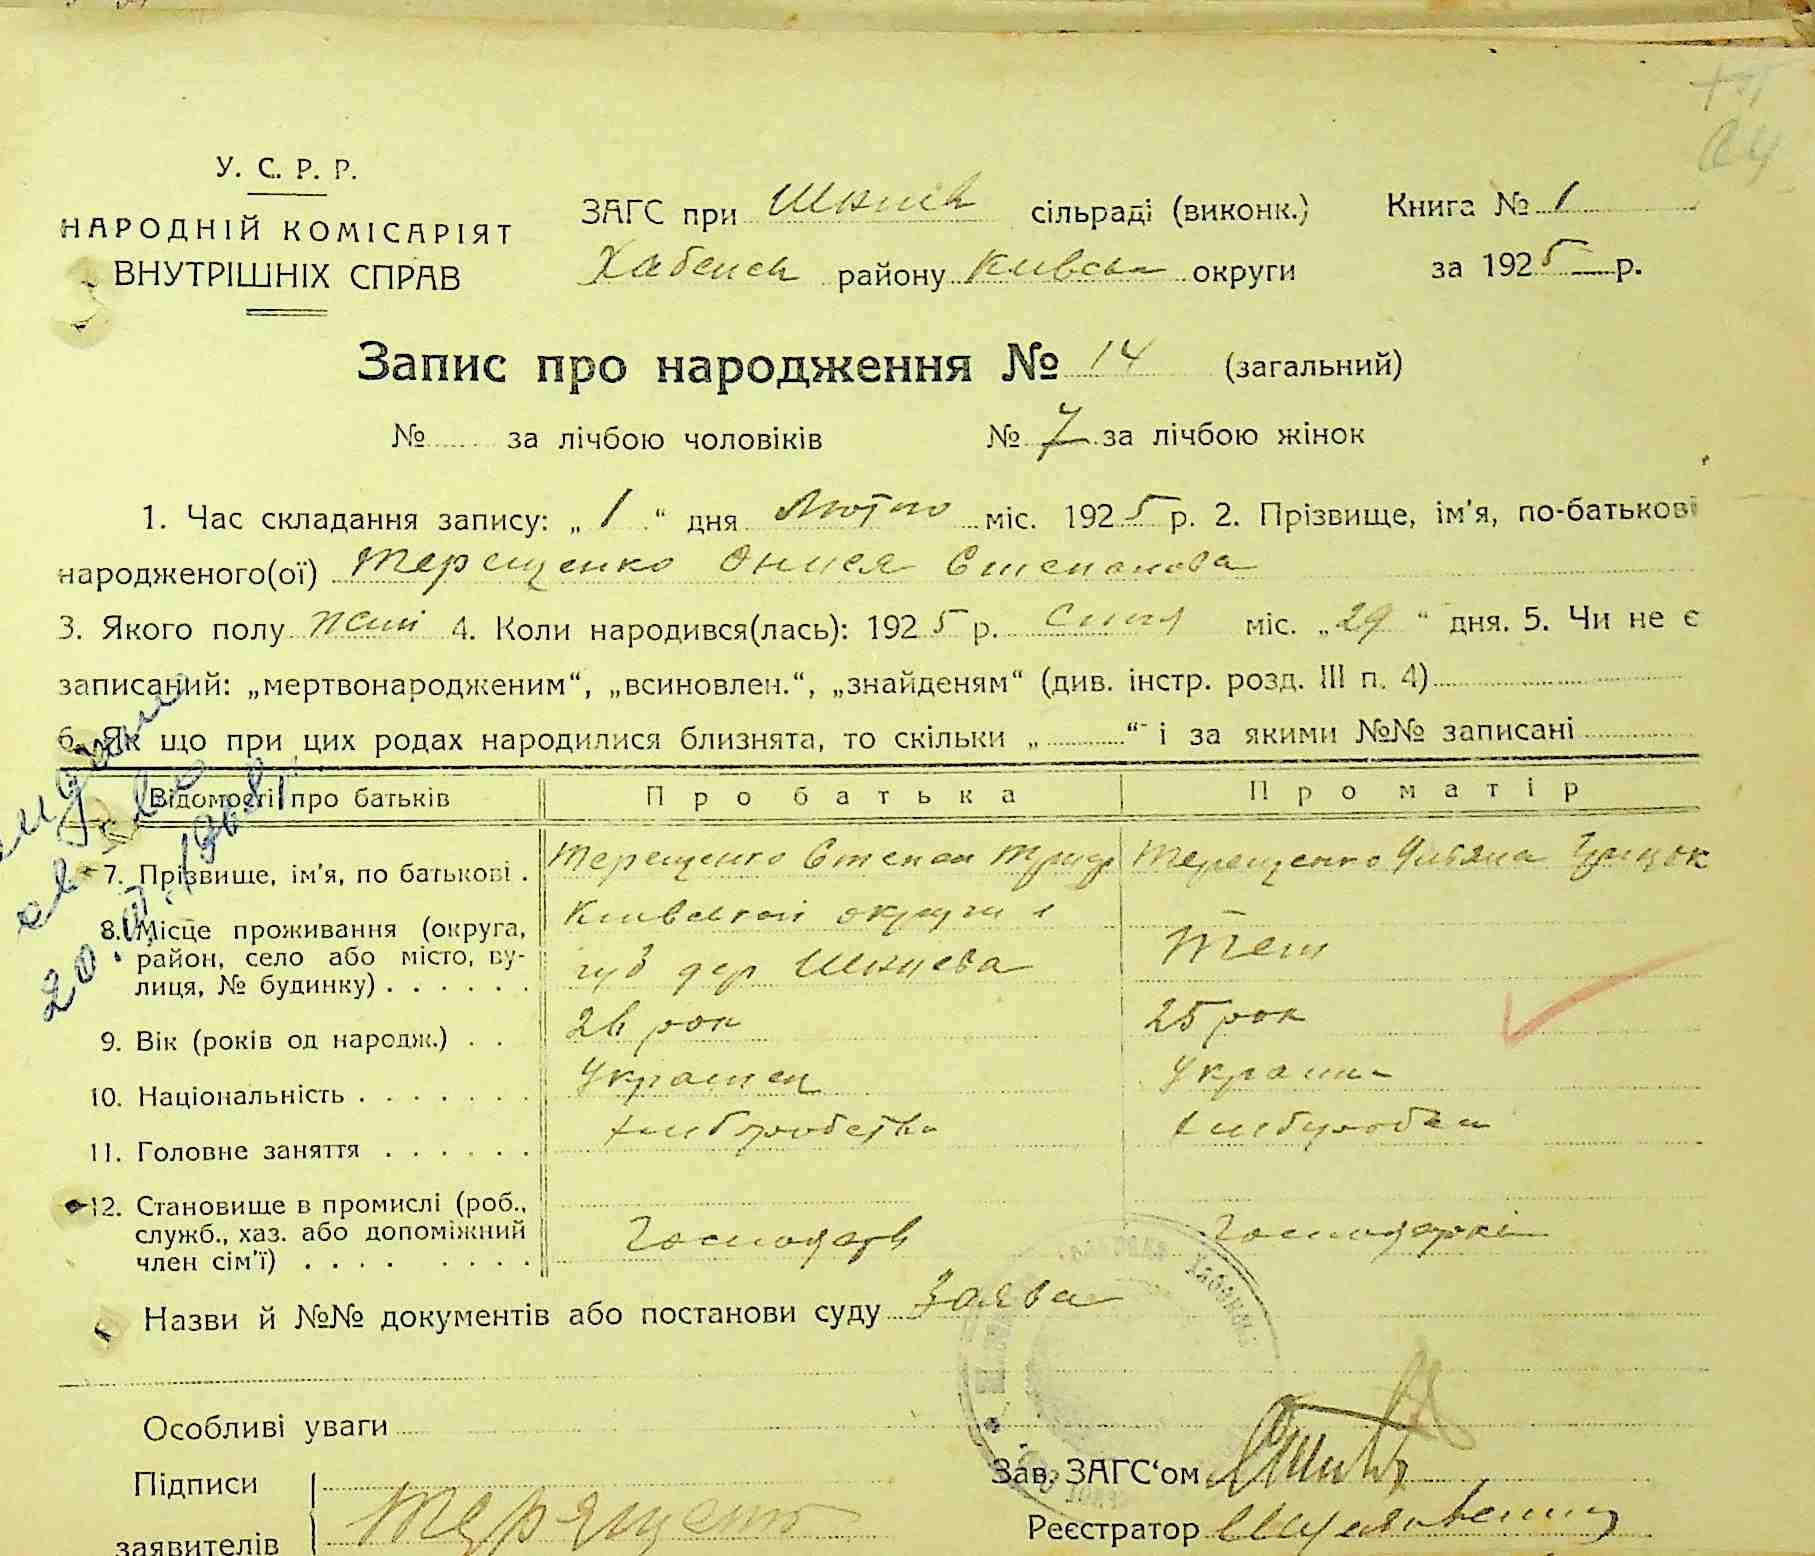 У. С. Р. Р.
НАРОДНІЙ КОМІСАРІЯТ
ВНУТРІШНІХ СПРАВ
ЗАГС при сільраді (виконк.) Книга № 1
Хабенск району Київськ округи за 1925 р.
Запис про народження № 14 (загальний)
№ за лічбою чоловіків № 7 за лічбою жінок
1. Час складання запису: „ 1 “ дня Лютого міс. 1925 р. 2. Прізвище, ім'я, по-батькові
народженого(ої) Терещенко Степанова
3. Якого полу жін 4. Коли народився(лась): 1925 р. Січня міс. „29“ дня. 5. Чи не є
записаний: „мертвонародженим“, „всиновлен.“, „знайденям“ (див. інстр. розд. III п. 4)
6. Як що при цих родах народилися близнята, то скільки „ “ і за якими №№ записані
Відомості про батьків Про батька Про матір
7. Прізвище, ім'я, по батькові . Терещенко Степан Терещенко Уляна
8. Місце проживання (округа, район, село або місто, вулиця, № будинку) . . . . . . Київской округи
9. Вік (років од народж.) . . 26 рок 25 рок
10. Національність . . . . . . . Украинец Украин
11. Головне заняття . . . . . .
12. Становище в промислі (роб., служб., хаз. або допоміжний член сім'ї) . . . . . . . . Господарь Господаркі
Назви й №№ документів або постанови суду Заява
Особливі уваги
Підписи
заявителів
Зав. ЗАГС'ом
Реєстратор